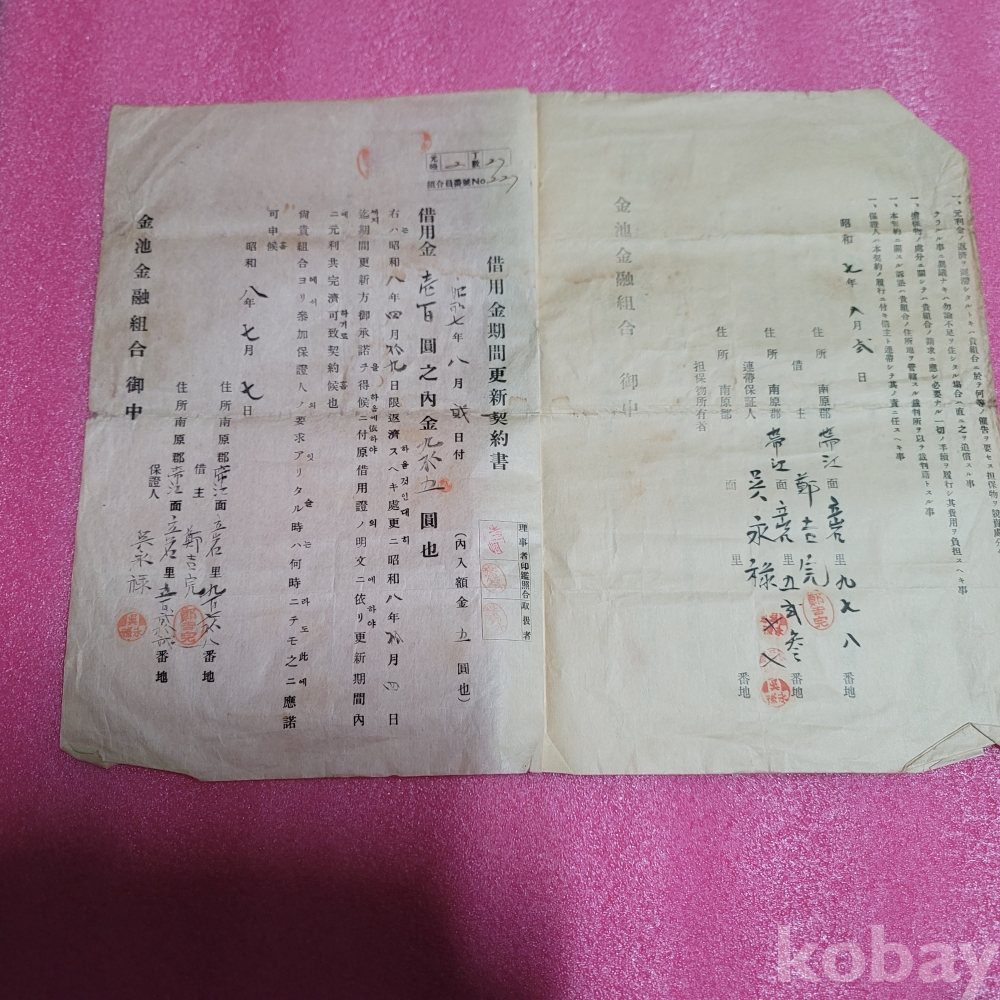 一、元利金ノ返濟ヲ延滯シタルトキハ貴組合ニ於テ何等ノ催告ヲ要セス擔保物ヲ競賣處分
セラルル事ニ異議ナキハ勿論不足ヲ生シタル場合ハ直ニ之ヲ追償スル事
一、擔保物ノ處分ニ關シテハ貴組合ノ請求ニ應シ必要ナル一切ノ手續ヲ履行シ其費用ヲ負担スヘキ事
一、本契約ニ關スル訴訟ハ貴組合ノ住所地ヲ管轄スル裁判所ヲ以テ裁判籍トスル事
一、保證人ハ本契約ノ履行ニ付キ借主ト連帶シテ其ノ責ニ任スヘキ事
昭和 七年 八月 弐日
住所 南原郡 帶江面 立岩里 九七八 番地
借主 鄭吉完
住所 南原郡 帶江面 立岩里 五弐叁 番地
連帶保証人 吳永祿
住所 南原郡 面 里 番地
担保物所有者
金池金融組合 御中
元帳 丁數 27
組合員番號No. 227
借用金期間更新契約書
昭和七年 八月 弐日付 (內入額金 五 圓也)
借用金 壱百 圓之內金 九拾五 圓也
理事者印鑑照合取扱者
右ハ昭和 八年 四月 拾九日限返濟スヘキ處更ニ昭和 八年 拾月 四日
迄期間更新方御承諾ヲ得候ニ付原借用證ノ明文ニ依リ更新期間內
ニ元利共完濟可致契約候也
尙貴組合ヨリ參加保證人ノ要求アリタル時ハ何時ニテモ之ニ應諾
可申候
昭和 八年 七月 七日
住所南原郡 帶江面 立岩里 九百七拾八 番地
借主 鄭吉完
住所南原郡 帶江面 立岩里 番地
保證人 吳永祿
金池金融組合 御中
kobay